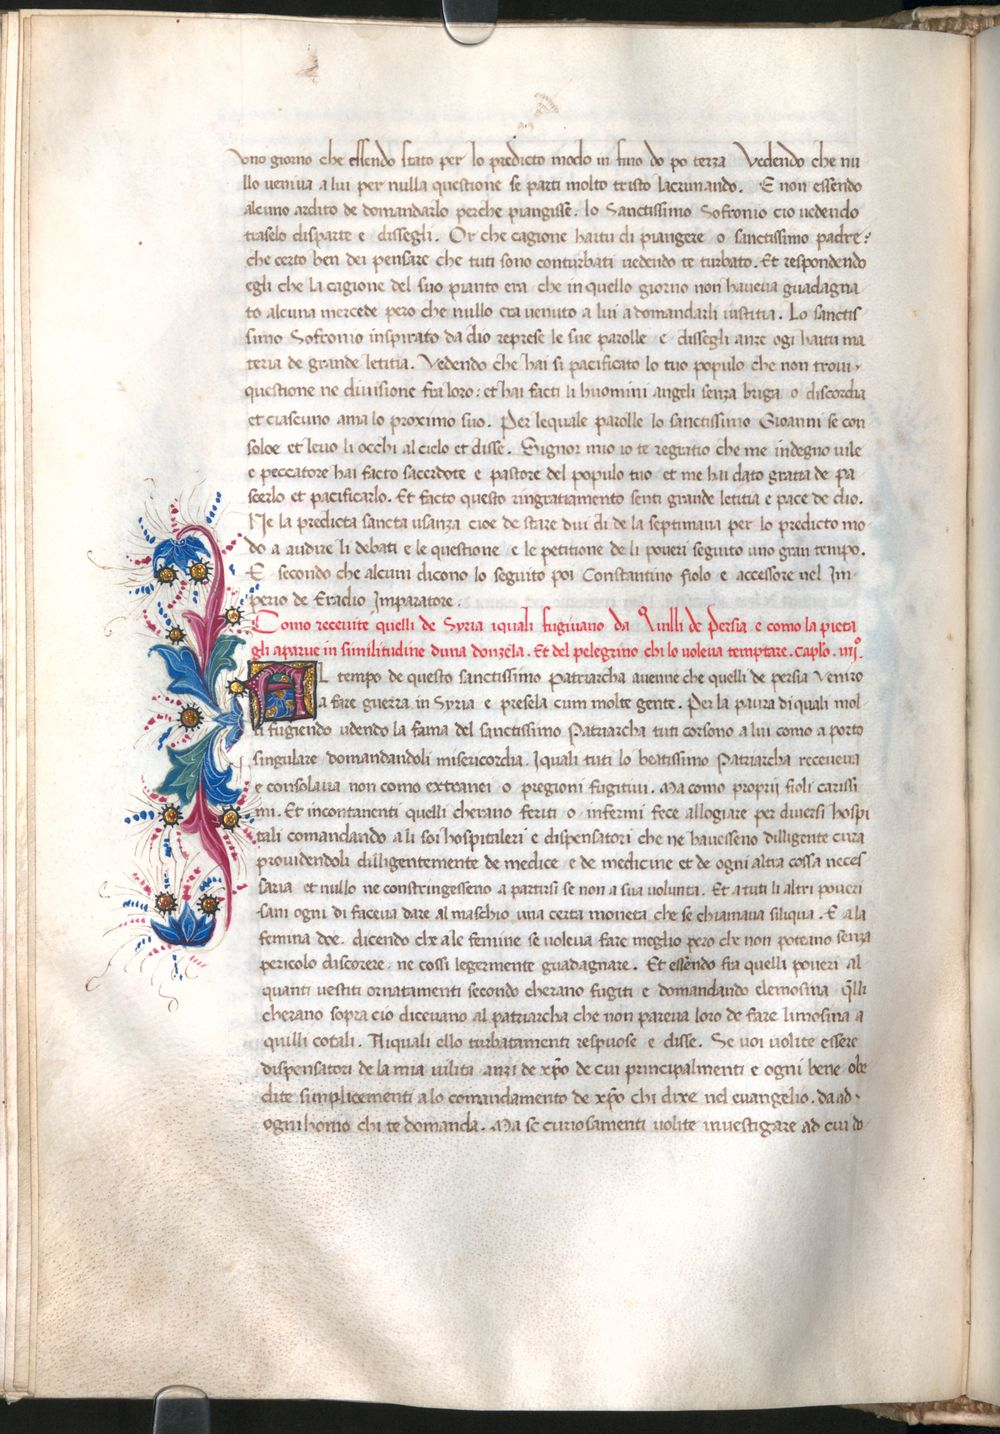 Uno giorno che essendo stato per lo predicto modo in fino do po terza Vedendo che nu
llo veniva a lui per nulla questione se parti molto tristo lacrimando. E non essendo
alcuno ardito de domandarlo perche piangisse. lo Sanctissimo Sofronio cio vedendo
traselo disparte e dissegli. Or che cagione haitu di piangere o sanctissimo padre:
che certo ben dei pensare che tuti sono conturbati vedendo te turbato. Et respondendo
egli che la cagione del suo pianto era che in quello giorno non haveva guadagna
to alcuna mercede pero che nullo era venuto a lui a domandarli iustitia. Lo sanctis
simo Sofronio inspirato da dio represe le sue parolle e dissegli anze ogi haitu ma
teria de grande letitia. Vedendo che hai si pacificato lo tuo populo che non trovi
questione ne divisione fra loro: et hai facti li huomini angeli senza briga o discordia
et ciascuno ama lo proximo suo. Per lequale parolle lo sanctissimo Gioanni se con
soloe et levo li occhi al cielo et disse. Signor mio io te regratio che me indegno vile
e peccatore hai facto sacerdote e pastore del populo tuo et me hai dato gratia de pa
scerlo et pacificarlo. Et facto questo ringratiamento senti grande letitia e pace de dio.
Ne la predicta sancta usanza cioe de stare dui di de la septimana per lo predicto mo
do a audire li debati e le questione e le petitione de li poveri seguito uno gran tempo.
E secondo che alcuni dicono lo seguito poi Constantino fiolo e accessore nel Im-
perio de Eraclio Imparatore.
Como recevite quelli de Syria iquali fugivano da quilli de Persia e como la pieta
gli aparve in similitudine duna donzela. Et del pelegrino chi lo voleva temptare. caplo. iiij°.
AL tempo de questo sanctissimo Patriarcha avenne che quelli de persia veniro
a fare guerra in Syria e presela cum molte gente. Per la paura di quali mol
ti fugiendo udendo la fama del sanctissimo Patriarcha tuti corsono a lui como a porto
singulare domandandoli misericordia. Iquali tuti lo beatissimo Patriarcha receveva
e consolava non como extranei o pregioni fugitivi. Ma como proprii fioli carissi
mi. Et incontanenti quelli cherano feriti o infermi fece allogiare per diversi hospi
tali comandando a li soi hospitaleri e dispensatori che ne havesseno dilligente cura
providendoli dilligentemente de medice e de medicine et de ogni altra cossa neces
saria et nullo ne constringesseno a partirsi se non a sua volunta. Et a tuti li altri poveri
sani ogni di faceva dare al maschio una certa moneta che se chiamava siliqua. E a la
femina doe. dicendo che ale femine se voleva fare meglio pero che non poteano senza
pericolo discorere, ne cossi legermente guadagnare. Et essendo fra quelli poveri al
quanti vestiti ornatamenti secondo cherano fugiti e domandando elemosina q̃lli
cherano sopra cio dicevano al patriarcha che non pareva loro de fare limosina a
quilli cotali. Ai quali ello turbatamenti respuose e disse. Se voi volite essere
dispensatori de la mia vilita anzi de xp̃o de cui principalmenti e ogni bene obe
dite simplicementi a lo comandamento de xp̃o chi dixe nel evangelio. da ad
ogni homo chi te domanda. Ma se curiosamenti volite investigare ad cui do